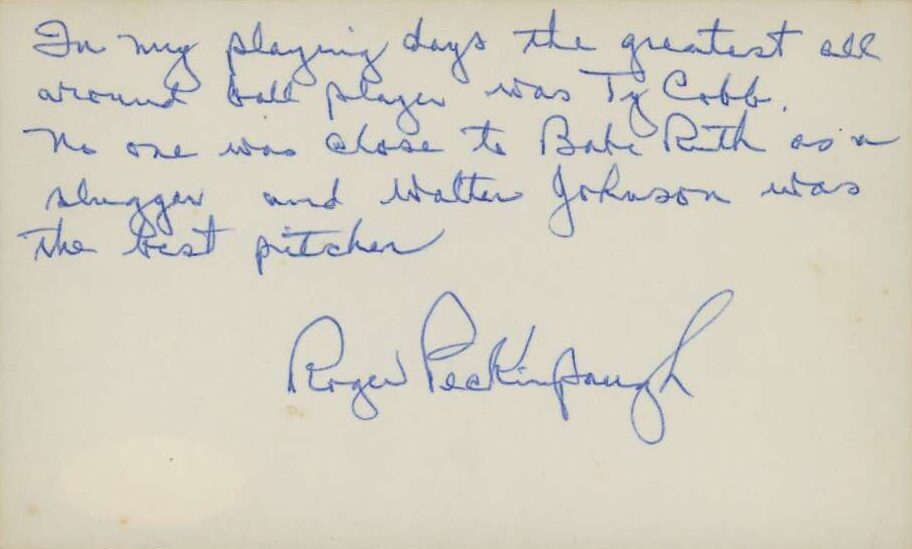 In my playing days the greatest all
around ball player was Ty Cobb.
No one was close to Babe Ruth as a
slugger and Walter Johnson was
the best pitcher
Roger Peckinpaugh